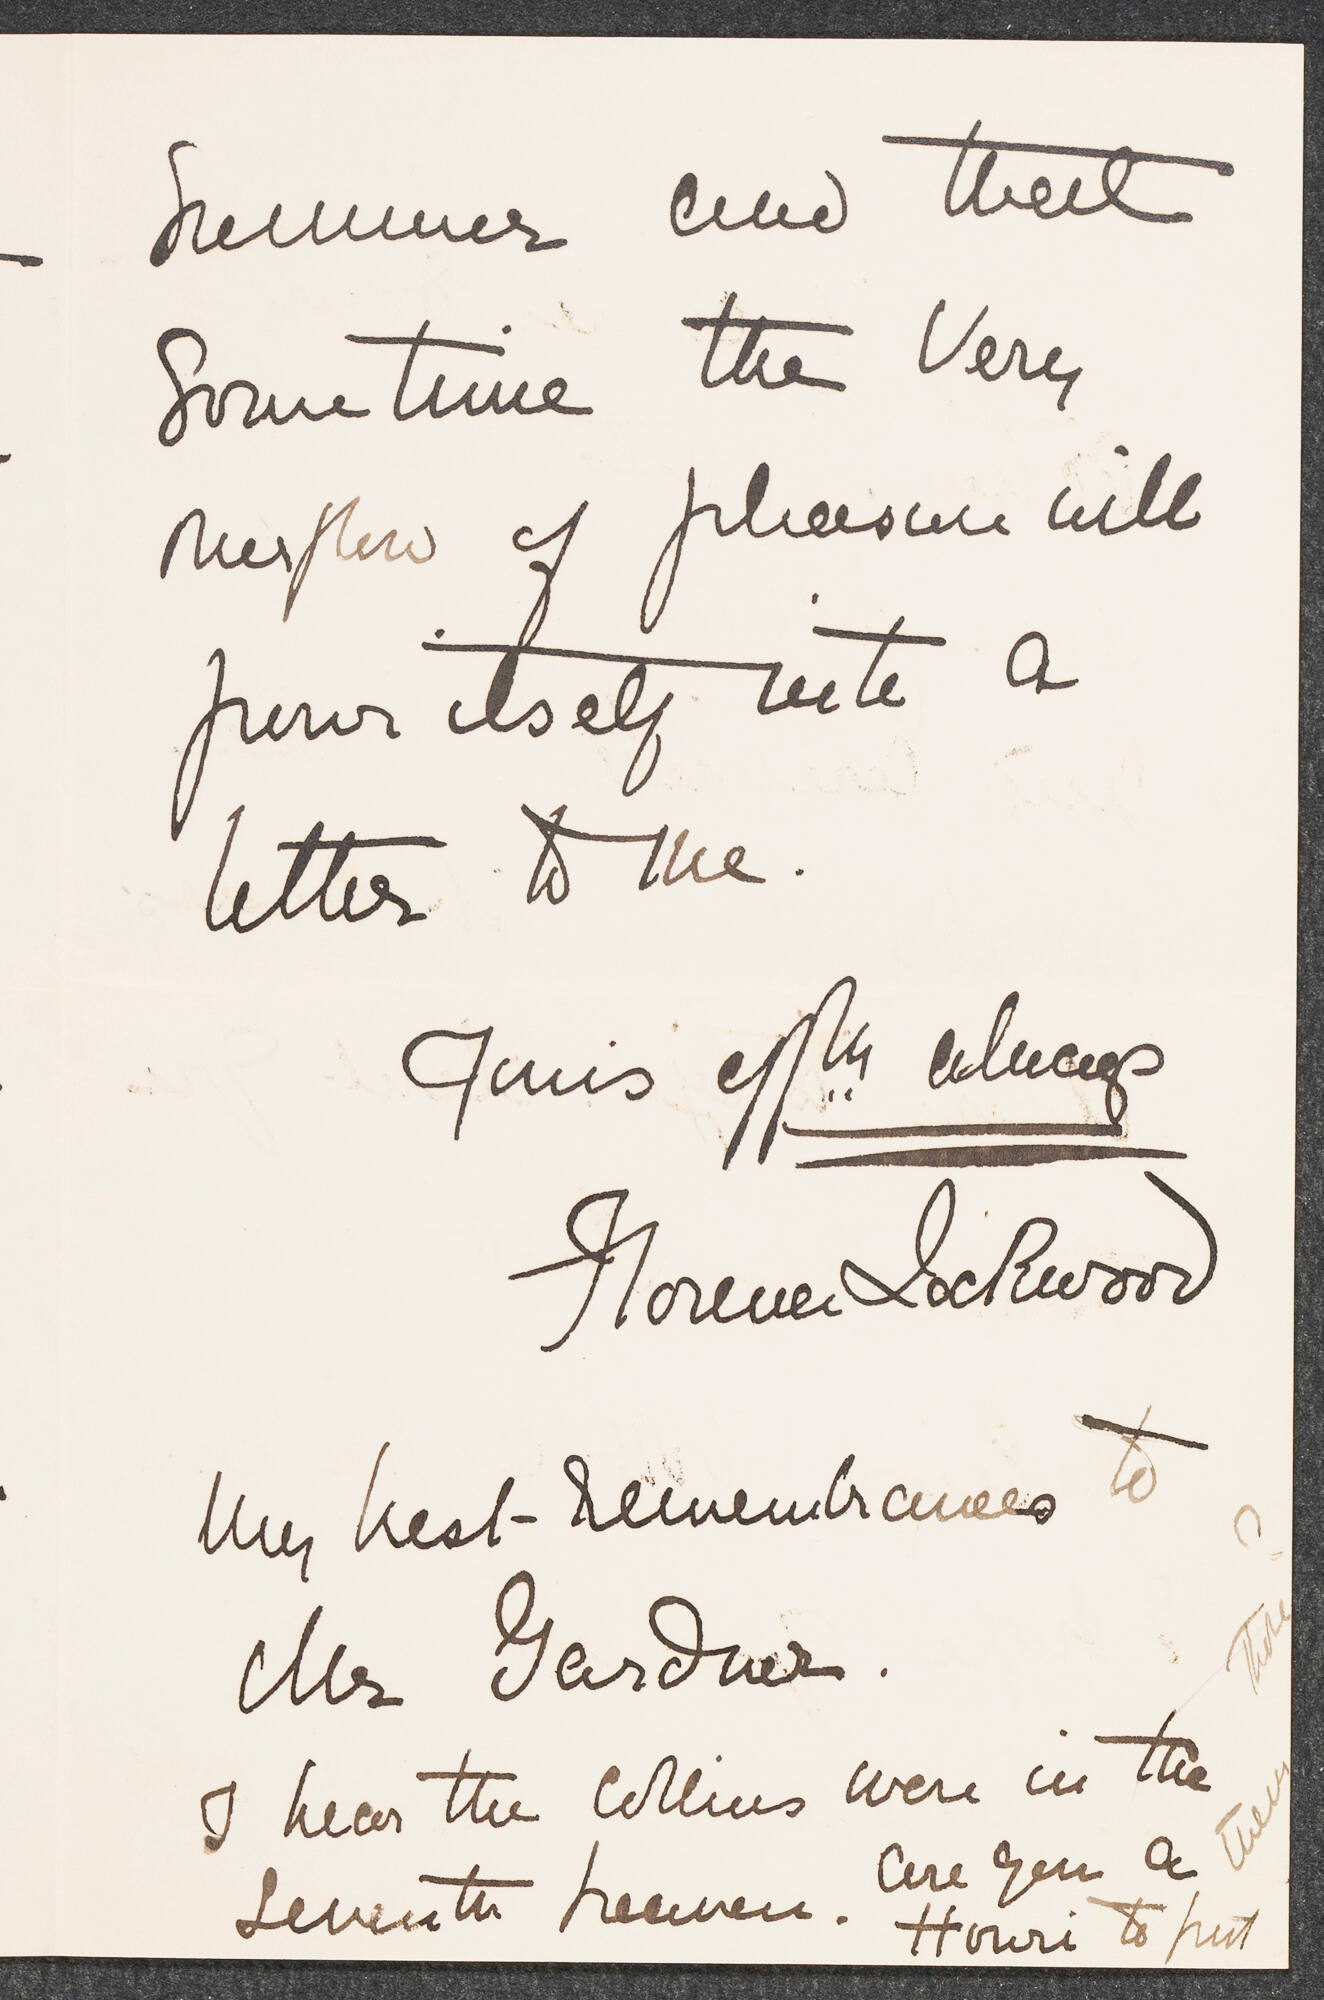 Summer and that
Sometime the very
overflow of pleasure will
pour itself into a
letter to me.
Yours affly always
Florence Lockwood
My best remembrances to
Mr Gardner.
I hear the Collins were in the
seventh heaven. Are you a
Houri to put
them there?